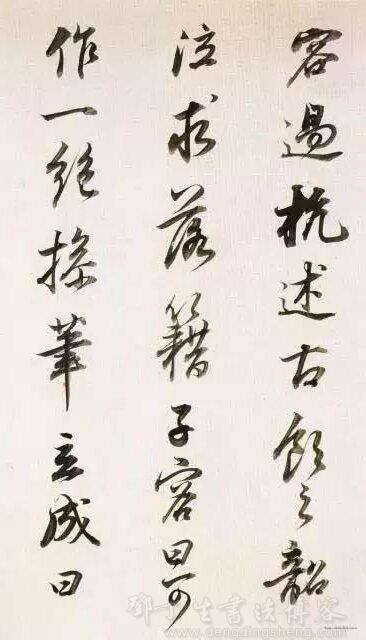 容過杭述古飲之韶
泣求落籍子容曰可
作一絕援筆立成曰
生書法博客
www.dengdingsheng.com